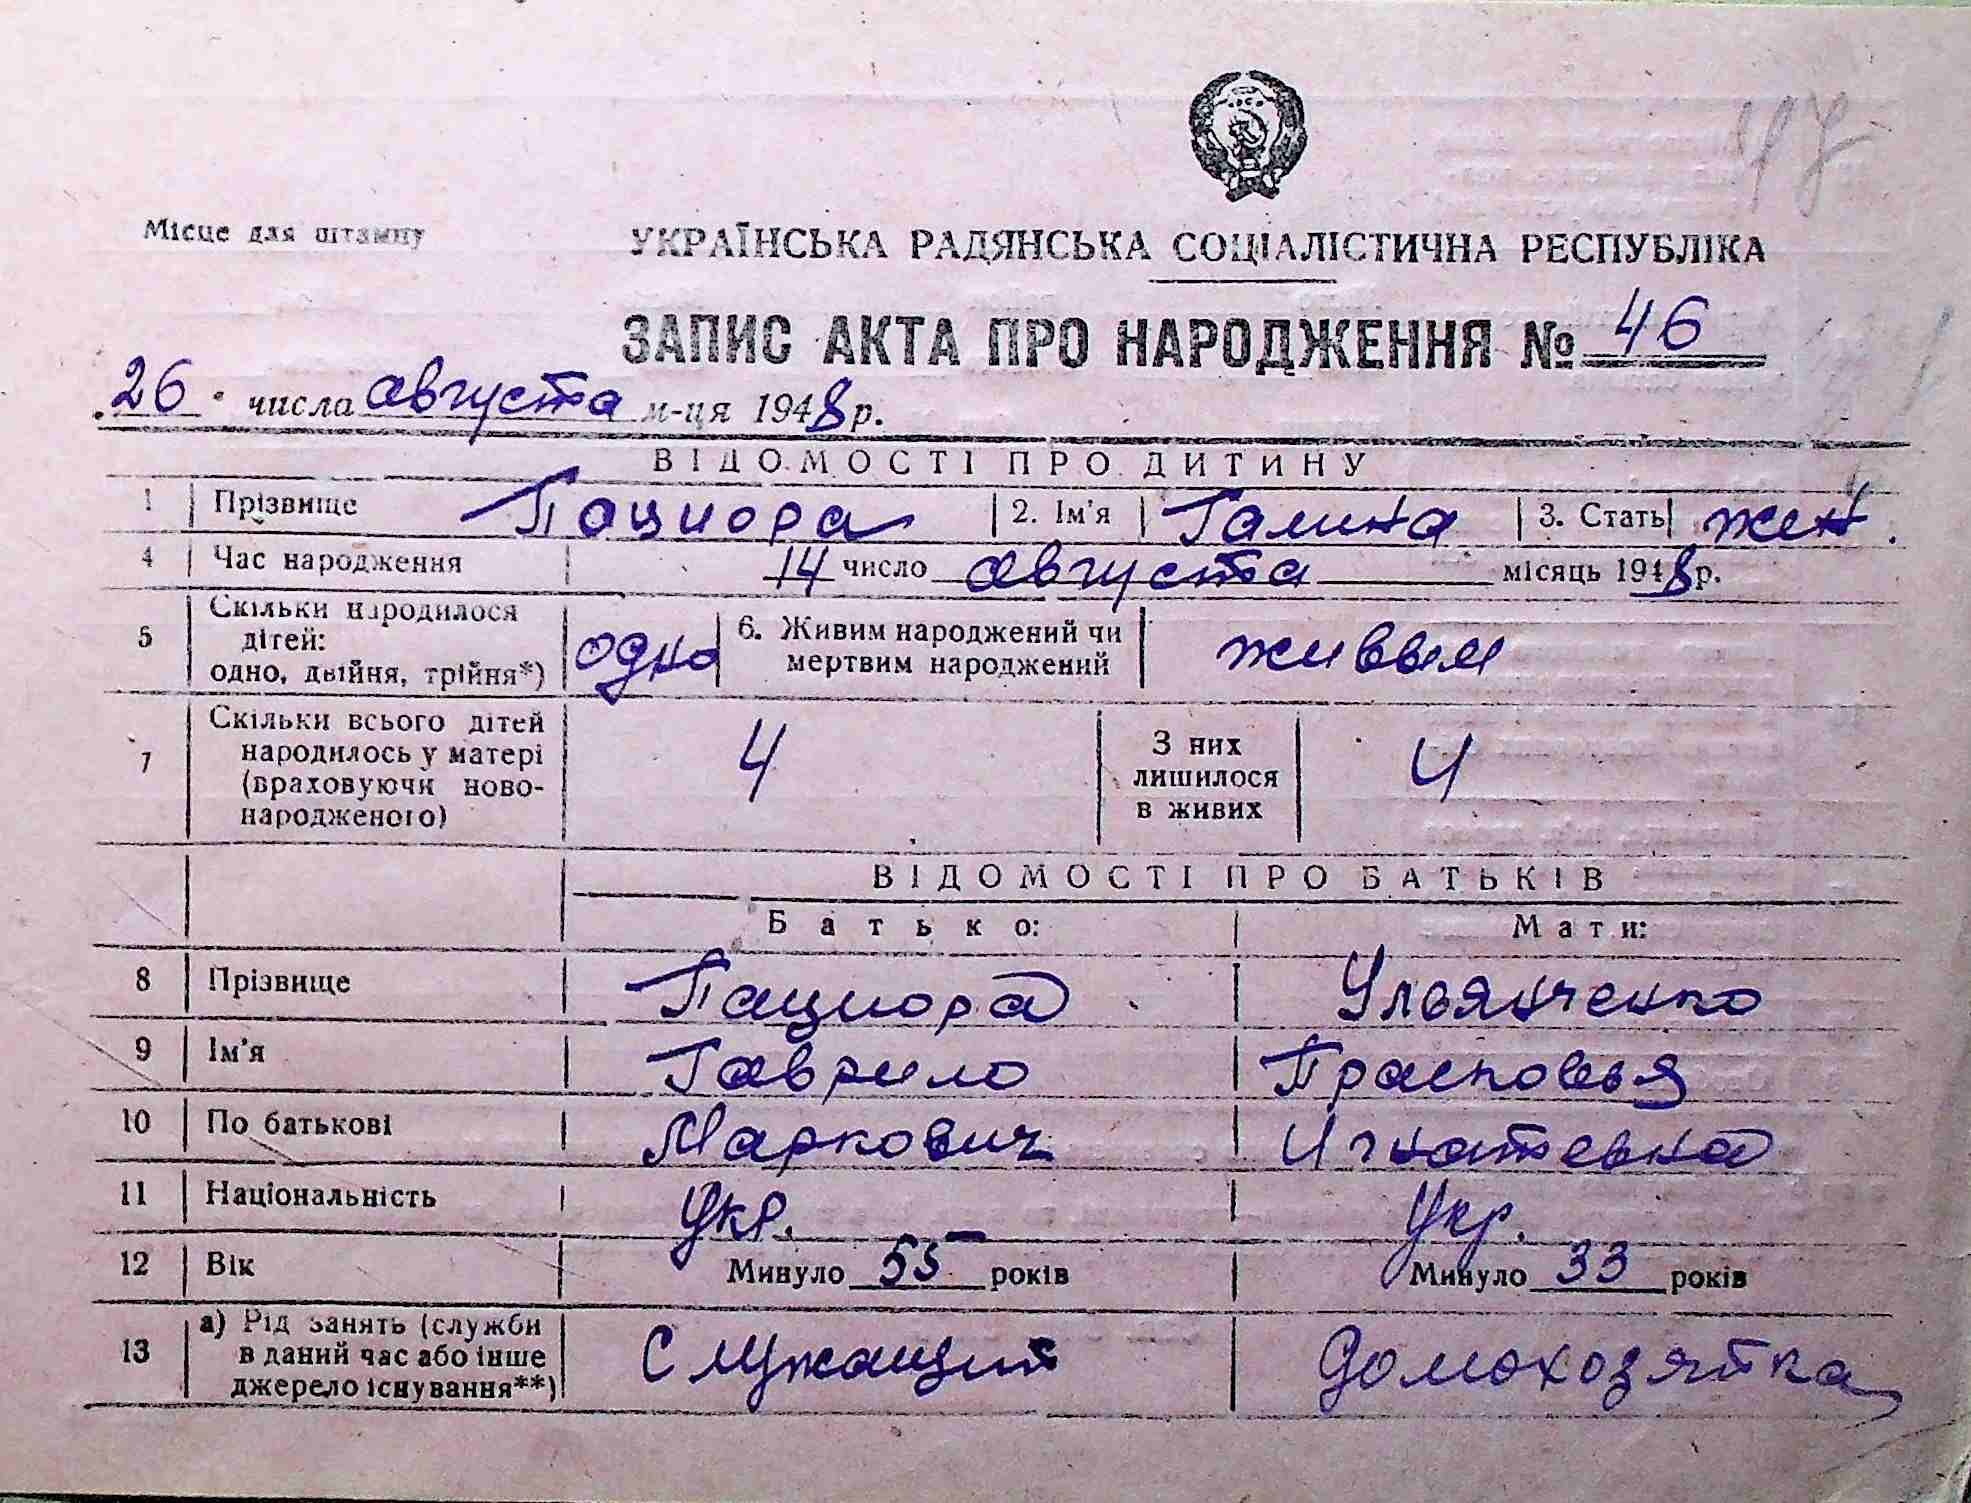 Місце для штампу
УКРАЇНСЬКА РАДЯНСЬКА СОЦІАЛІСТИЧНА РЕСПУБЛІКА
ЗАПИС АКТА ПРО НАРОДЖЕННЯ № 46
26 числа августа м-ця 1948 р.
ВІДОМОСТІ ПРО ДИТИНУ
1 Прізвище Пациора 2. Ім'я Галина 3. Стать жен.
4 Час народження 14 число августа місяць 1948 р.
5 Скільки народилося дітей: одно, двійня, трійня*) одно 6. Живим народжений чи мертвим народжений живым
7 Скільки всього дітей народилось у матері (враховуючи ново-народженого) 4 З них лишилося в живих 4
ВІДОМОСТІ ПРО БАТЬКІВ
Батько: Мати:
8 Прізвище Пациора Ульянченко
9 Ім'я Гаврило Прасковья
10 По батькові Маркович Игнатевна
11 Національність Укр. Укр.
12 Вік Минуло 55 років Минуло 33 років
13 а) Рід занять (служби в даний час або інше джерело існування**) Служащий домохозяйка